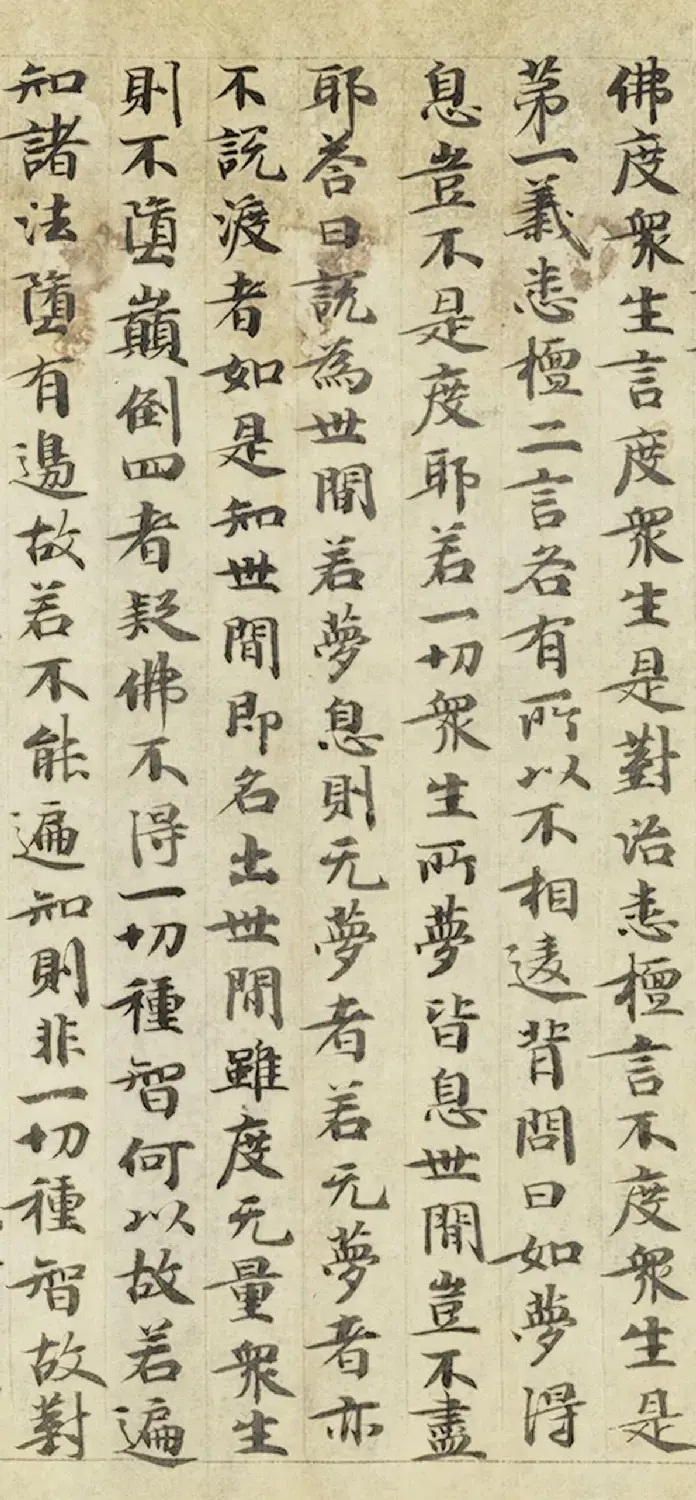 佛度衆生言度衆生是對治悉檀言不度衆生是
苐一義悉檀二言各有所以不相違背問曰如夢得
息豈不是度耶若一切衆生所夢皆息世間豈不盡
耶荅曰説為世間若夢息則无夢者若无夢者亦
不説渡者如是知世間即名出世間雖度无量衆生
則不墮巔倒四者疑佛不得一切種智何以故若遍
知諸法墮有邊故若不能遍知則非一切種智故對